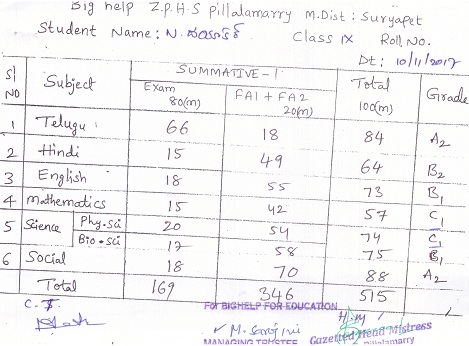 Big help Z.P.H.S pillalamarry m.Dist : Suryapet
Student Name: N.
Class IX Roll No.
Dt: 10/11/2017
Sl NO Subject SUMMATIVE-1 Total 100(m) Grade
Exam 80(m) FA1 + FA2 20(m)
1 Telugu 66 18 84 A2
2 Hindi 15 49 64 B2
3 English 18 55 73 B1
4 mathematics 15 42 57 C1
5 Science Phy.sci 20 54 74 C1
Bio.sci 17 58 75 B1
6 Social 18 70 88 A2
Total 169 346 515
C.T.
For BIGHELP FOR EDUCATION
H.M
M. Sarojini
Gazetted Head Mistress
MANAGING TRUSTEE
Pillalamarry